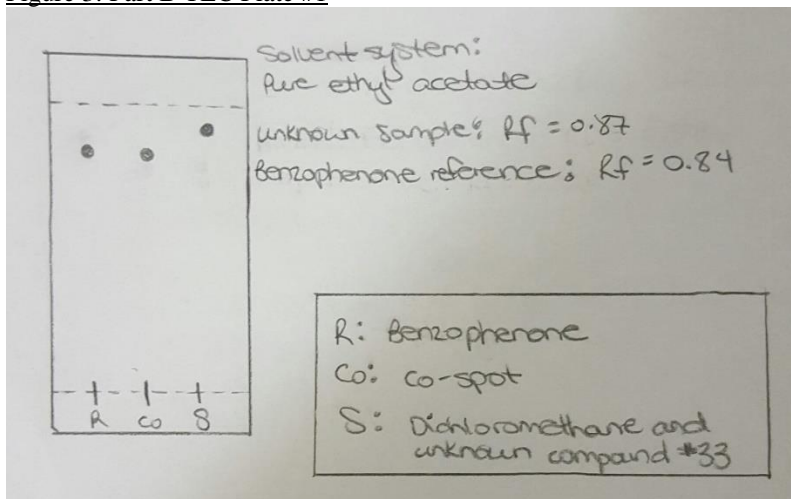 Solvent system:
Pure ethyl acetate
unknown sample: Rf = 0.87
Benzophenone reference: Rf = 0.84
R: Benzophenone
Co: co-spot
S: Dichloromethane and
unknown compound #33
R co S